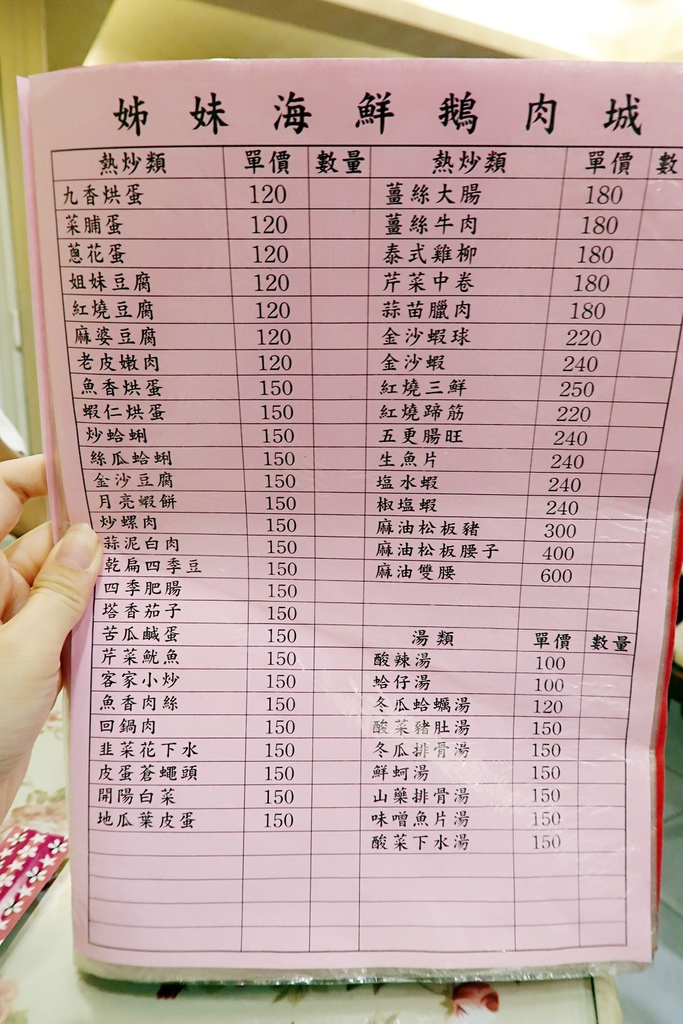 姊妹海鮮鵝肉城
熱炒類 單價 數量 熱炒類 單價 數
九香烘蛋 120 薑絲大腸 180
菜脯蛋 120 薑絲牛肉 180
蔥花蛋 120 泰式雞柳 180
姐妹豆腐 120 芹菜中卷 180
紅燒豆腐 120 蒜苗臘肉 180
麻婆豆腐 120 金沙蝦球 220
老皮嫩肉 120 金沙蝦 240
魚香烘蛋 150 紅燒三鮮 250
蝦仁烘蛋 150 紅燒蹄筋 220
炒蛤蜊 150 五更腸旺 240
絲瓜蛤蜊 150 生魚片 240
金沙豆腐 150 塩水蝦 240
月亮蝦餅 150 椒塩蝦 240
炒螺肉 150 麻油松板豬 300
蒜泥白肉 150 麻油松板腰子 400
乾扁四季豆 150 麻油雙腰 600
四季肥腸 150
塔香茄子 150
苦瓜鹹蛋 150 湯類 單價 數量
芹菜魷魚 150 酸辣湯 100
客家小炒 150 蛤仔湯 100
魚香肉絲 150 冬瓜蛤蠣湯 120
回鍋肉 150 酸菜豬肚湯 150
韭菜花下水 150 冬瓜排骨湯 150
皮蛋蒼蠅頭 150 鮮蚵湯 150
開陽白菜 150 山藥排骨湯 150
地瓜葉皮蛋 150 味噌魚片湯 150
酸菜下水湯 150